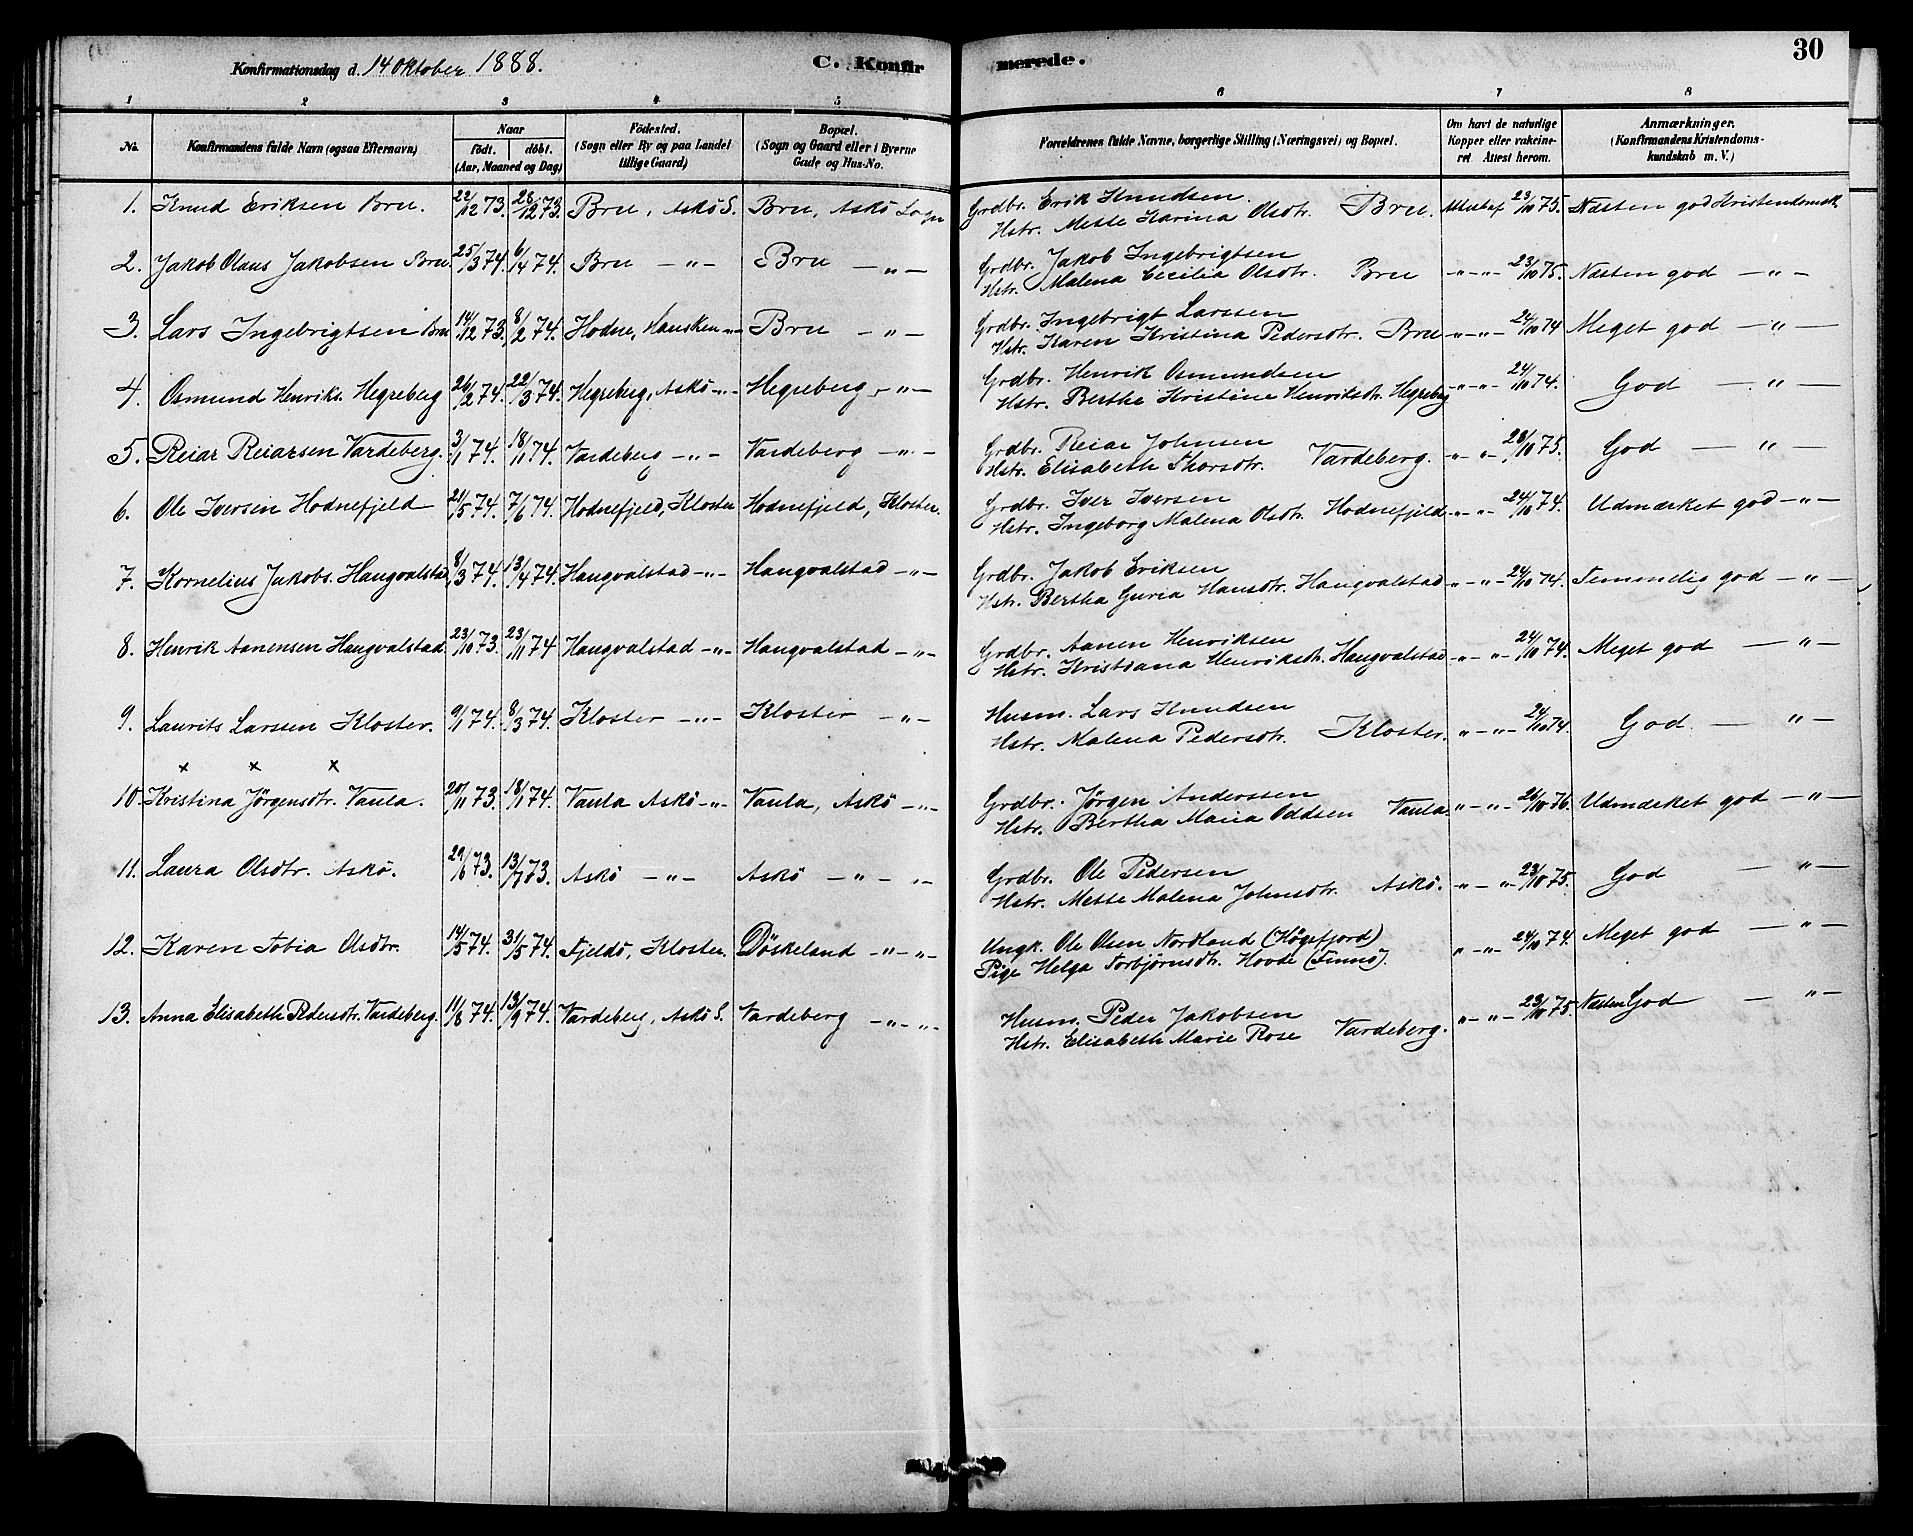 30
Konfirmationsdag d. 14 Oktober 1888. C. Konfirmerede.
1 2 3 4 5 6 7 8
No. Konfirmandens fulde Navn (ogsaa Efternavn) Naar født. døbt. (Aar, Maaned og Dag) Fødested. (Sogn eller By og paa Landet tillige Gaard) Bopæl. (Sogn og Gaard eller i Byerne Gade og Hus-No. Forældrenes fulde Navne, borgerlige Stilling (Næringsvei) og Bopæl. Om havt de naturlige Kopper eller vakcineret Attest herom. Anmærkninger. (Konfirmandens Kristendomskundskab m. V.)
1. Knud Eriksen Bru. 22/12 73. 28/12 73. Bru, Askö S. Bru, Askö Sogn Grdbr. Erik Knudsen.
Hstr. Mette Karina Olsdtr. Bru. 23/10 75. Næsten god Kristendomsk.
2. Jakob Olaus Jakobsen Bru. 25/3 74. 6/4 74. Bru —"— Bru —"— Grdbr. Jakob Ingebrigtsen
Hstr. Malena Cecilia Olsdtr. Bru "—"— 23/10 75. Næsten god —"—
3. Lars Ingebrigtsen Bru 14/12 73. 8/2 74. Hodne, Hausken —"— Bru —"— Grdbr. Ingebrigt Larssen
Hstr. Karen Kristina Pedersdtr. Bru "—"— 24/10 74 Meget god —"—
4. Osmund Henriks. Hegreberg 26/2 74. 22/3 74. Hegreberg, Askö —"— Hegreberg —"— Grdbr. Henrik Osmundsen
Hstr. Berthe Kristine Henriksdtr. Hegreberg "—"— 24/10 74. God —"—
5. Reiar Reiarsen Vardeberg. 3/1 74. 18/1 74. Vardeberg —"— Vardeberg —"— Grdbr. Reiar Johnsen
Hstr. Elisabeth Thorsdtr. Vardeberg. "—"— 23/10 75. God —"—
6. Ole Iversen Hodnefjeld 21/5 74. 7/6 74. Hodnefjeld, Kloster Hodnefjeld, Kloster. Grdbr. Iver Iversen
Hstr. Ingeborg Malena Olsdtr. Hodnefjeld "—"— 24/10 74. Udmærket god —"—
7. Kornelius Jakobs. Haugvalstad 8/3 74. 13/4 74. Haugvalstad —"— Haugvalstad —"— Grdbr. Jakob Eriksen
Hstr. Bertha Guria Hansdtr. Haugvalstad "—"— 24/10 74. Temmelig god —"—
8. Henrik Aanensen Haugvalstad. 23/10 73. 23/11 74 Haugvalstad —"— Haugvalstad —"— Grdbr. Aanen Henriksen
Hstr. Kristiana Henriksdtr. Haugvalstad "—"— 24/10 74. Meget god —"—
9. Laurits Larssen Kloster. 9/1 74. 8/3 74. Kloster —"— Kloster —"— Husm. Lars Knudsen
Hstr. Malena Pedersdtr. Kloster. "—"— 24/10 74. God. —"—
x x x
10. Kristina Jörgensdtr. Vaula. 20/11 73. 18/1 74. Vaula Askö —"— Vaula, Askö —"— Grdbr. Jörgen Anderssen
Hstr. Bertha Maria Oddsen Vaula. "—"— 26/10 76. Udmærket god —"—
11. Laura Olsdtr. Askö. 29/6 73. 13/7 73. Askö —"— Askö —"—"— Grdbr. Ole Pedersen
Hstr. Mette Malena Johnsdtr. Askö. "—"— 23/10 75. God —"—
12. Karen Tobia Olsdtr. 14/5 74. 31/5 74. Fjeldö, Kloster. Döskeland —"—"— Ungk. Ole Olsen Nordland (Högsfjord)
Pige Helga Torbjörnsdtr. Hovde (Finnö). "—"— 24/10 74. Meget god —"—
13. Anna Elisabeth Pedersdtr. Vardeberg. 11/8 74. 13/9 74. Vardeberg, Askö S. Vardeberg —"—"— Husm. Peder Jakobsen
Hstr. Elisabeth Marie Rose Vardeberg. "—"— 23/10 75. Næsten God —"—